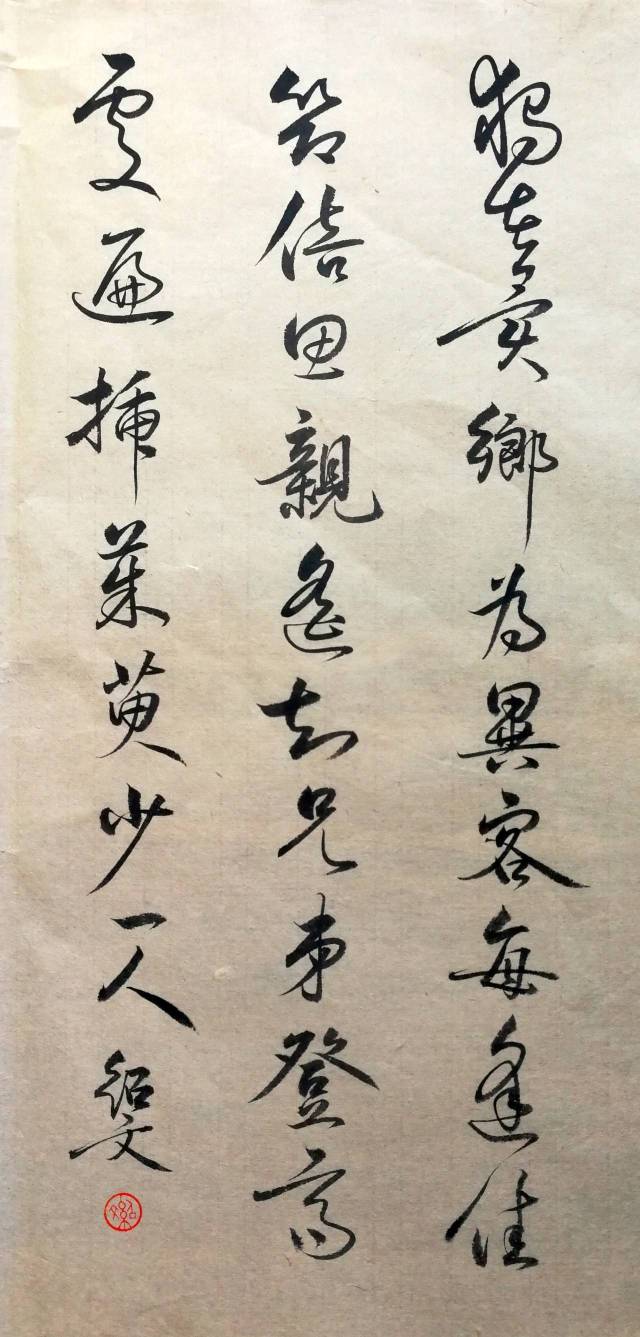 獨在異鄉為異客每逢佳
節倍思親遙知兄弟登高
處遍插茱萸少一人
紹文